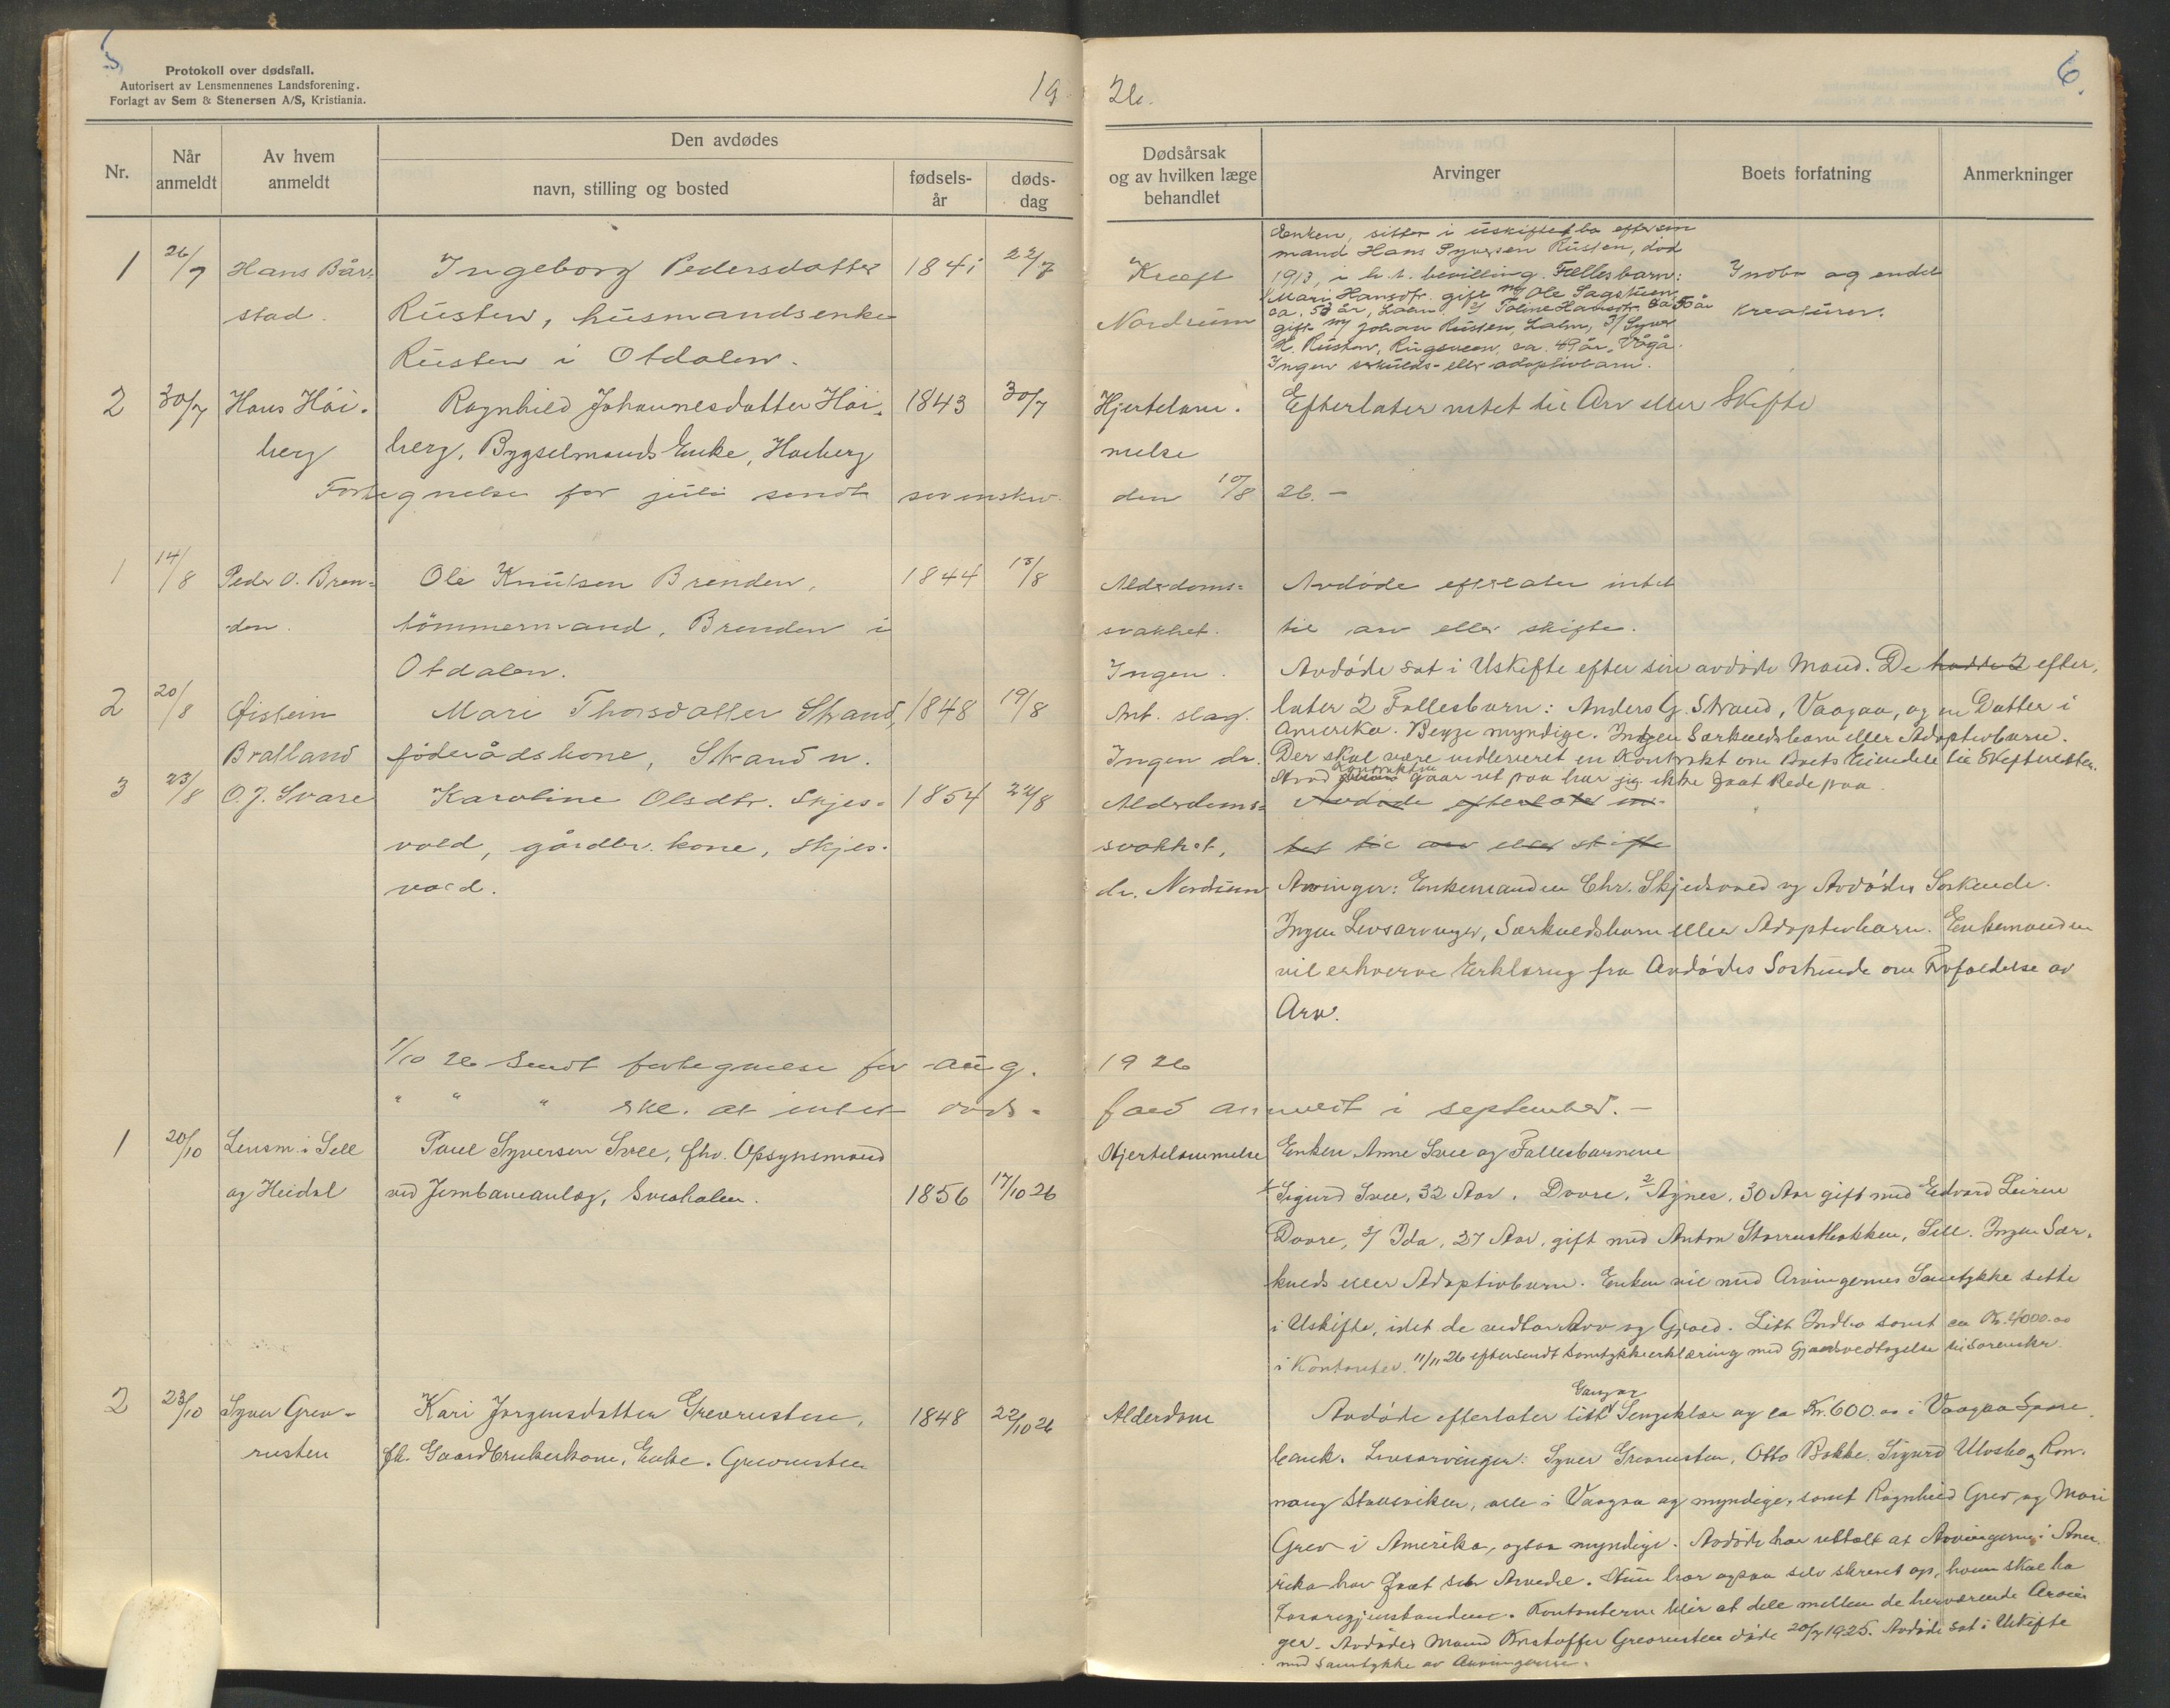 5
Protokoll over dødsfall.
Autorisert av Lensmennenes Landsforening.
Forlagt av Sem & Stenersen A/S, Kristiania.
19 26.
6.
Nr.
Når anmeldt
Av hvem anmeldt
Den avdødes
navn, stilling og bosted
fødsels-år
døds-dag
Dødsårsak og av hvilken læge behandlet
Arvinger
Boets forfatning
Anmerkninger
1 26/7 Hans Bår-
stad.
Ingeborg Pedersdatter
Rusten, husmandsenke
Rusten i Otdalen.
1841 22/7
Kræft
Nordrum
Enken, sitter i uskiftet bo efter sin
mand Hans Syversen Rusten, död
1913, i h. t. bevilling. Fællesbarn:
1/ Mari Hansdtr. gift m/ Ole Sagstuen
ca. 53 år, 2/ Toline Hansdtr. ca 50 år
gift m/ Johan Rusten, Lalm, 3/ Syver
H. Rusten, ca. 49 år, Vågå.
Ingen særkulds- eller adoptivbarn.
Indbo og endel
kreaturer.
2 30/7 Hans Häi-
berg
Ragnhild Johannesdatter Häi-
berg, Bygselmands Enke, Haeberg
1843 30/7
Hjertelam-
melse
Efterlater intet til Arv eller Skifte
Fortegnelse for juli sendt sorenskr. den 10/8 26. -
1 14/8 Peder O. Bren-
den.
Ole Knutsen Brenden,
tömmermand, Brenden i
Otdalen.
1844 13/8
Alderdoms-
svakhet.
Ingen.
Avdöde efterlater intet
til arv eller skifte.
2 20/8 Øistein
Bratland
Mari Thorsdatter Strand,
föderådskone, Strand n.
1848 19/8
Ant. slag.
Ingen dr.
Avdöde sat i Uskifte efter sin avdöde Mand. De hadde 2 efter-
later 2 Fællesbarn: Anders G. Strand, Vaagaa, og en Datter i
Amerika. Begge myndige. Ingen Særkuldsbarn eller Adoptivbarn.
Der skal være indleveret en Kontrakt om Boets Eiendele til Skifteretten.
Hvad Kontrakten gaar ut paa har jeg ikke faat Rede paa.
3 23/8 O. J. Svare
Karoline Olsdtr. Skjes-
vold, gårdbr. kone, Skjes-
vold.
1854 22/8
Alderdoms-
svakhet,
dr. Nordrum
Avdöde efterlater in-
tet til arv eller skifte
Arvinger: Enkemanden Chr. Skjedsvold og Avdödes Söskende.
Ingen Livsarvinger, Særkuldsbarn eller Adoptivbarn. Enkemanden
vil erhverve Erklæring fra Avdödes Söskende om Frafaldelse av
Arv.
1/10 26 Sendt fortegnelse for aug. 1926
" " " skr. at intet döds-fald anmeldt i september. -
1 20/10 Lensm. i Sell
og Heidal
Paul Syversen Svee, fhv. Opsynsmand
ved Jernbaneanlæg,
1856 17/10 26
Hjertelammelse
Enken Anne Svee og Fællesbarnene
1/ Sigurd Svee, 32 Aar, Dovre, 2/ Agnes, 30 Aar gift med Edvard Leiren
Dovre, 3/ Ida, 27 Aar, gift med Anton Sell. Ingen Sær-
kulds eller Adoptivbarn. Enken vil med Arvingernes Samtykke sitte
i Uskifte, idet de vedtar Arv og Gjæld. Litt Indbo samt ca Kr. 4000.00
i Kontanter. 11/11 26 eftersendt samtykkeerklæring med Gjældsvedtagelse til sorenskr.
2 23/10 Syver Grev-
rusten
Kari Jörgensdatter Grevrusten,
fh. Gaardbrukerkone, Enke. Grevrusten
1848 22/10 26
Alderdom
Avdöde efterlater litt Gangog Sengeklær og ca Kr. 600.00 i Vaagaa Spare-
bank. Livsarvinger: Syver Grevrusten, Otto Bakke, Sigurd Ulvsbo og Ron-
naug Stallsviken, alle i Vaagaa og myndige, samt Ragnhild Grev og Mari
Grev i Amerika, ogsaa myndige. Avdöde har uttalt at Arvingerne i Ame-
rika har faat sin Arvedel. Hun har ogsaa selv skrevet op, hvem skal ha
Lösöregjenstandene. Kontanterne blir at dele mellem de herværende Arvin-
ger. Avdödes Mand Kristoffer Grevrusten döde 20/7 1925. Avdöde sat i Uskifte
med Samtykke av Arvingerne.